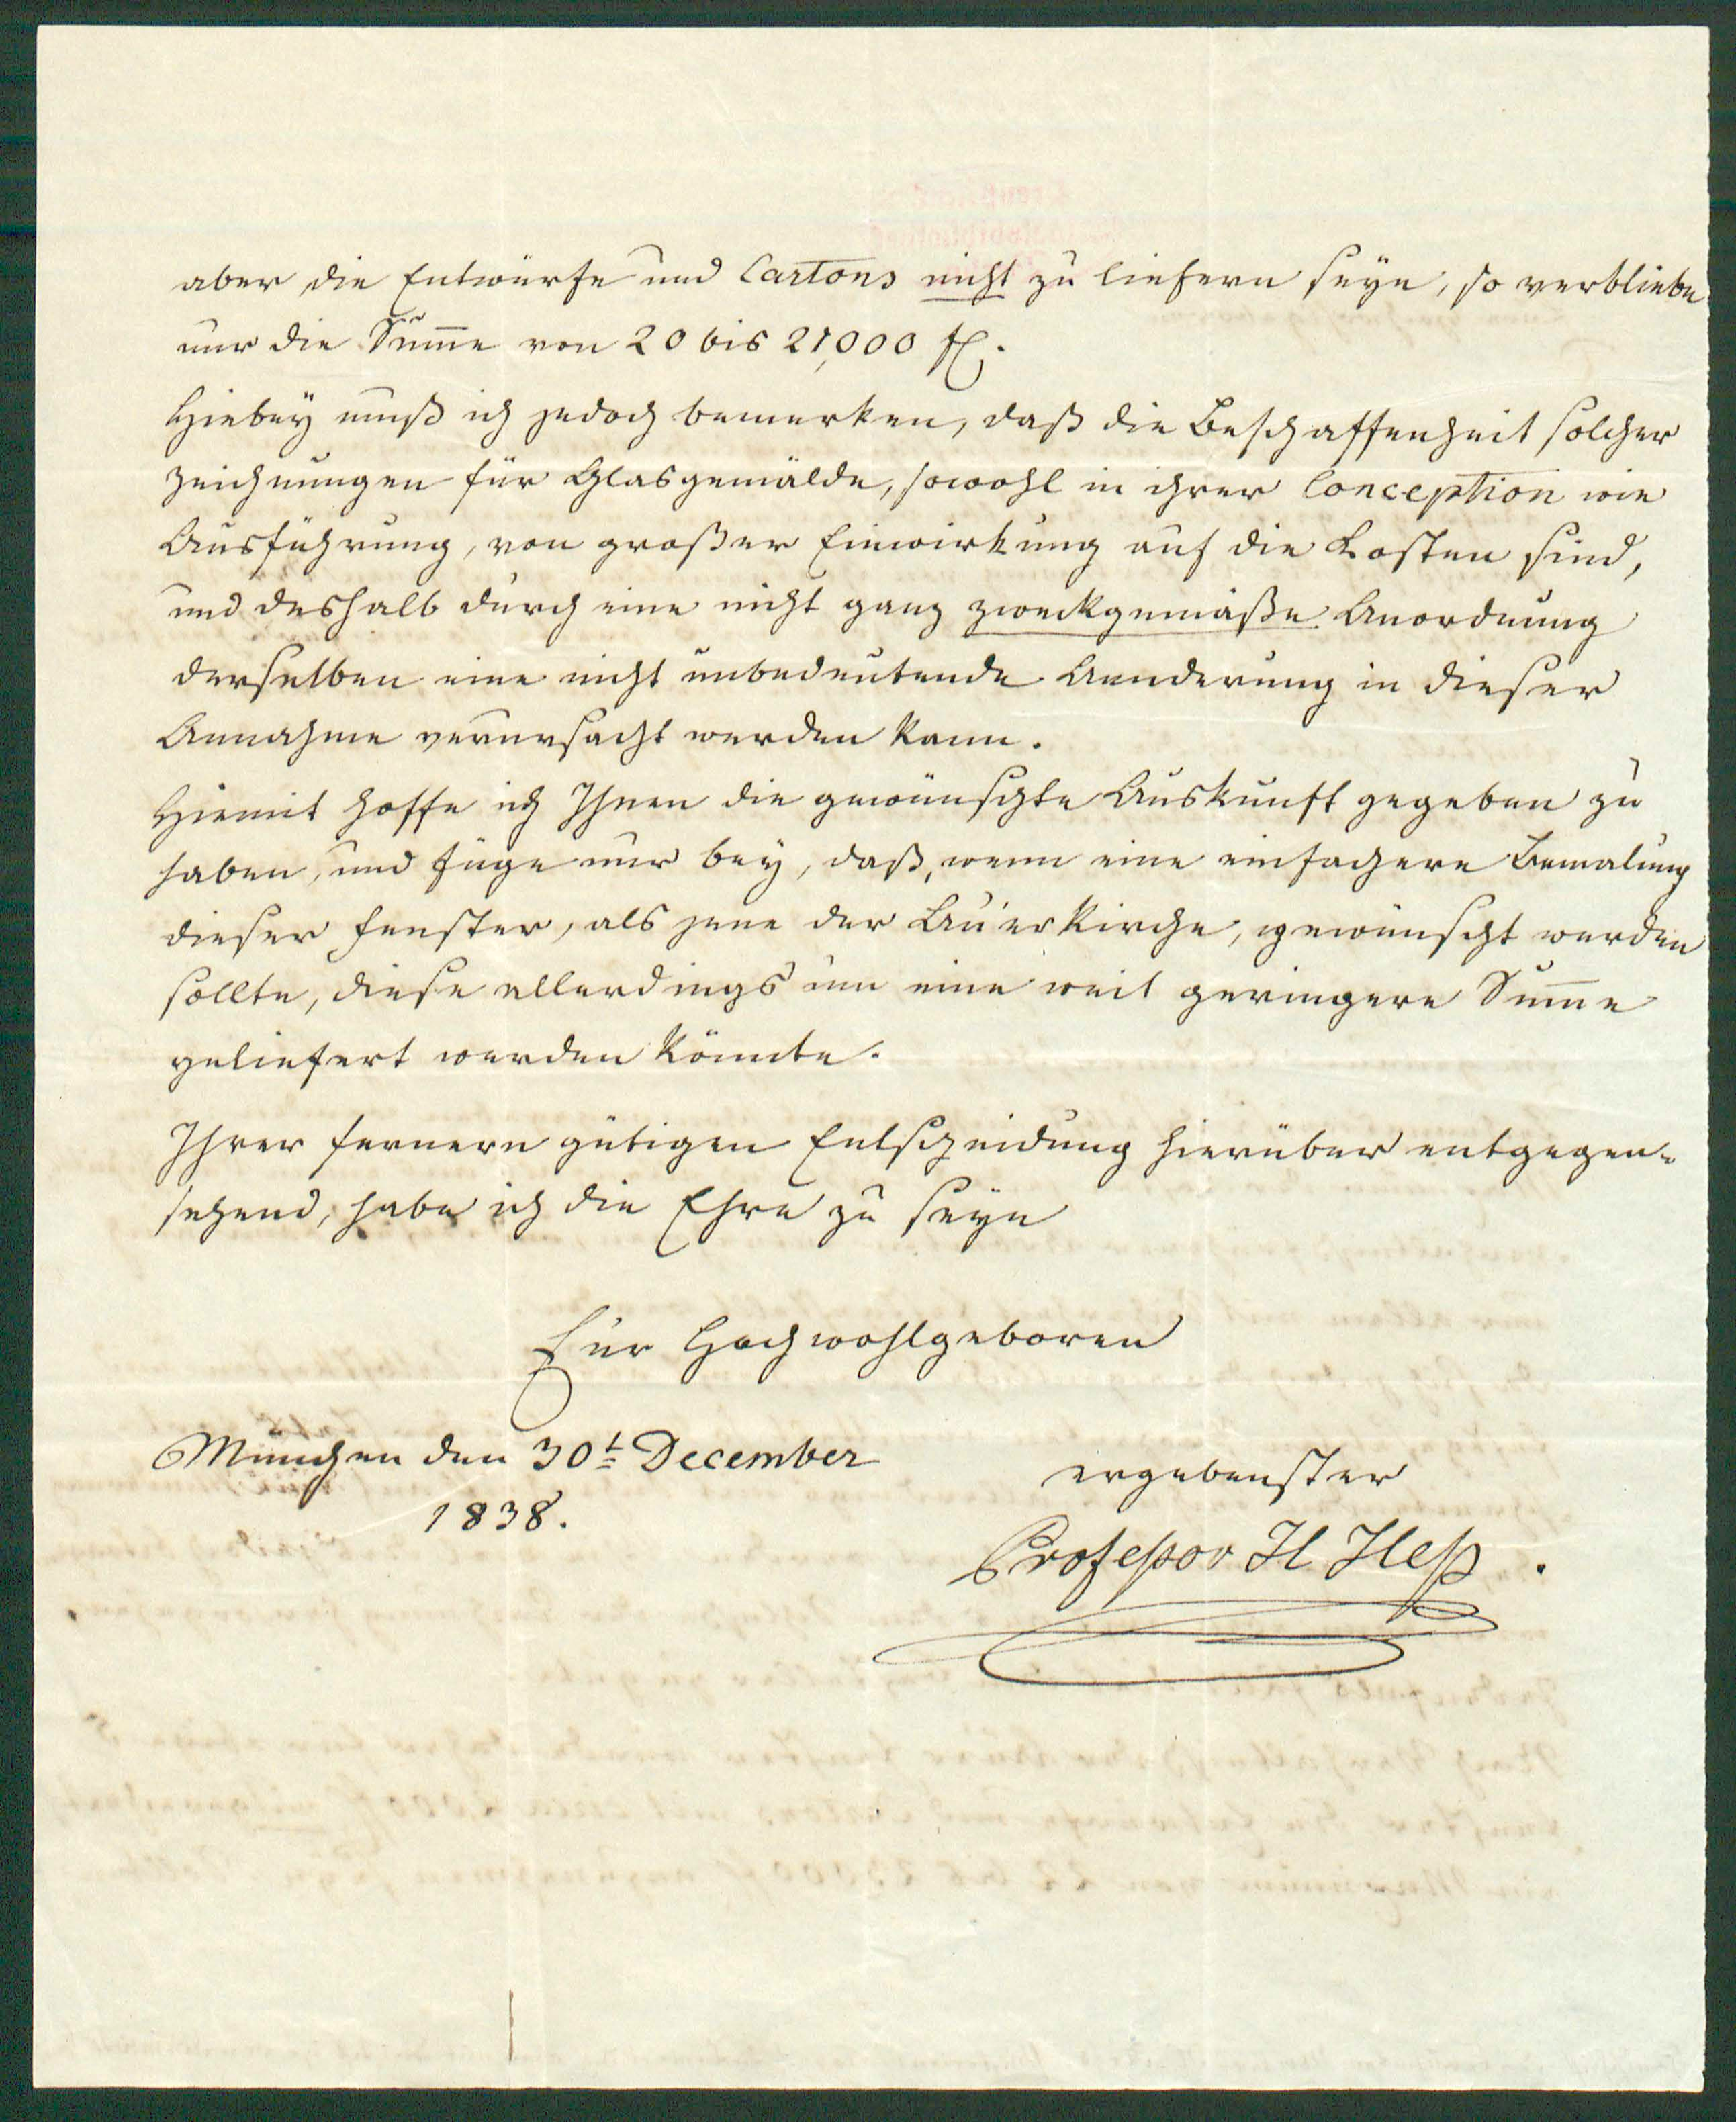 aber die Entwürfe und Cartons nicht zu liefern seyn, so verbliebe
nur die Sum̅e von 20 bis 21,000 fl.
Hiebey muß ich jedoch bemerken, daß die Beschaffenheit solcher
Zeichnungen für Glasgemälde, sowohl in ihrer Conception wie
Ausführung, von großer Einwirkung auf die Kosten sind,
und deshalb durch eine nicht ganz zweckgemäße Anordnung
derselben eine nicht unbedeutende Aenderung in dieser
Annahme verursacht werden kann.
Hiemit hoffe ich Ihnen die gewünschte Auskunft gegeben zu
haben, und füge nur bey, daß, wenn eine einfachere Bemalung
dieser Fenster, als jene der Au'erkirche, gewünscht werden
sollte, diese allerdings um eine weit geringere Sum̅e
geliefert werden könnte.
Ihrer fernern gütigen Entscheidung hierüber entgegen-
sehend, habe ich die Ehre zu seyn
Euer Hochwohlgeboren
München den 30t December
1838.
ergebenster
Professor H Heß.